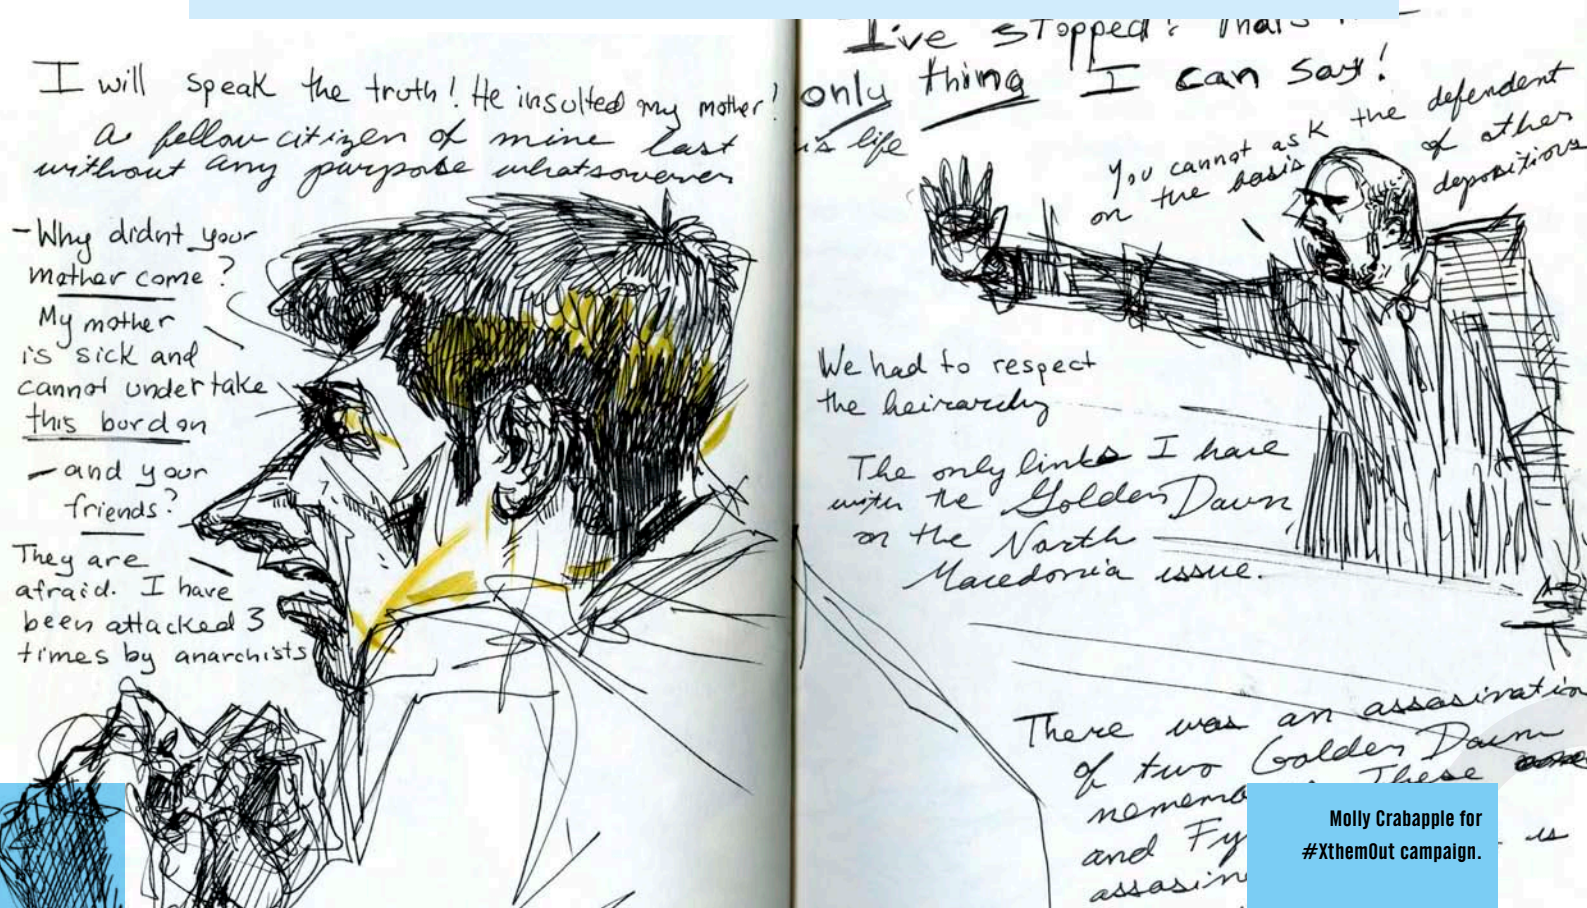 I will speak the truth! He insulted my mother!
a fellow citizen of mine last
without any purpose whatsowever
- Why didnt your
mother come?
My mother
is sick and
cannot undertake
this burdon
- and your
friends?
They are
afraid. I have
been attacked 3
times by anarchists
I've stopped! That's
only thing I can say!
is life
You cannot ask the defendent
on the basis of other
depositions
We had to respect
the heirarchy
The only links I have
with the Golden Dawn
on the North
Macedonia issue.
There was an assasination
of two Golden Dawn
These
and Fy is
Molly Crabapple for
#XthemOut campaign.